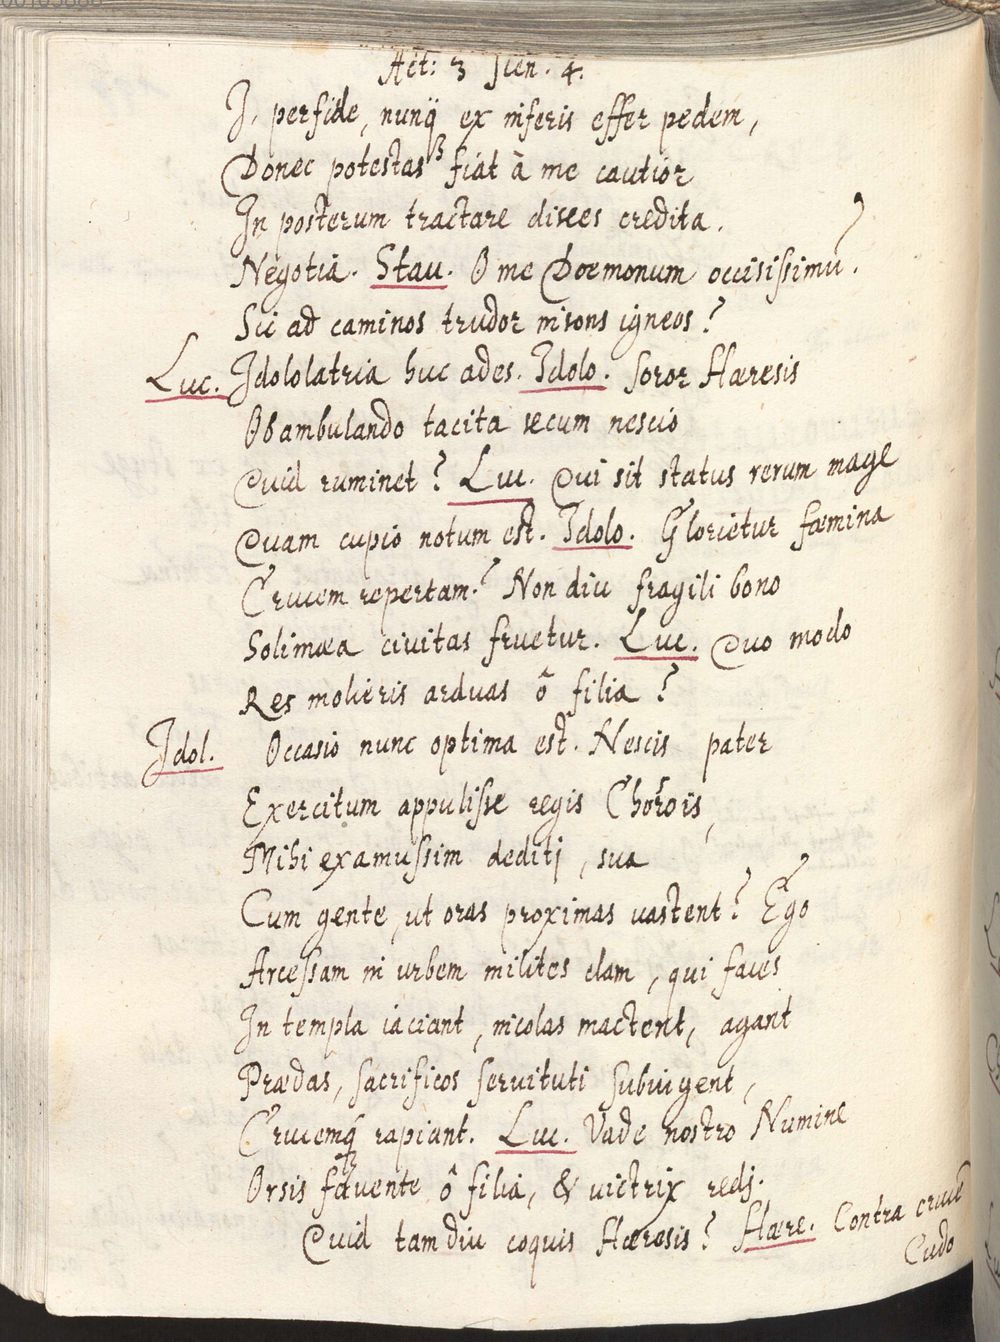 Act: 3 Scen. 4.
I, perfide, nunq̃ ex inferis effer pedem,
Donec potestas fiat à me cautior
In posterum tractare disces credita.
Negotia. Stau. O me Doemonum occisissimũ.
Sii ad caminos trudor insons igneos?
Luc. Idololatria huc ades. Idolo. soror Haeresis
Obambulando tacita secum nescio
Quid ruminet? Luc. Qui sit status rerum mage
Quam cupio notum est. Idolo. Glorietur foemina
Crucem repertam? Non diu fragili bono
Solimaea civitas fruetur. Luc. Quo modo
Res molieris arduas ô filia?
Idol. Occasio nunc optima est. Nescis pater
Exercitum appulisse regis
Mihi examussim dediti, sua
Cum gente, ut oras proximas vastent? Ego
Arcessam in urbem milites clam, qui faces
In templa iaciant, incolas mactent, agant
Praedas, sacrificos servituti subiugent,
Crucemq́ rapiant. Luc. Vade nostro Numine
Orsis favente ô filia, & victrix redj.
Quid tam diu coquis Haeresis? Haere. Contra crucẽ
Cudo